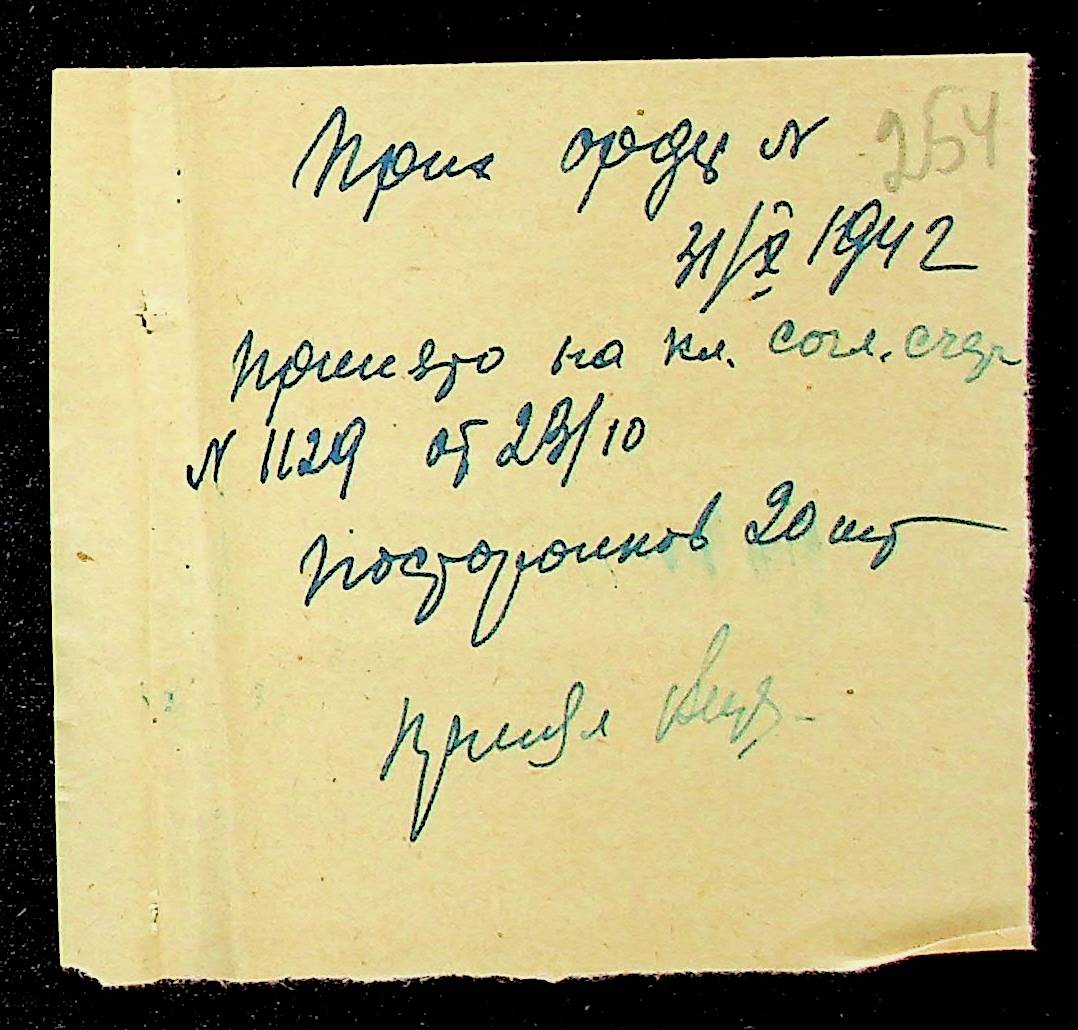 Прих ордер N 254
31/X 1942
Принято на кл. согл. счер
N 1129 от 23/10
Посторонков 20 шт
Принял